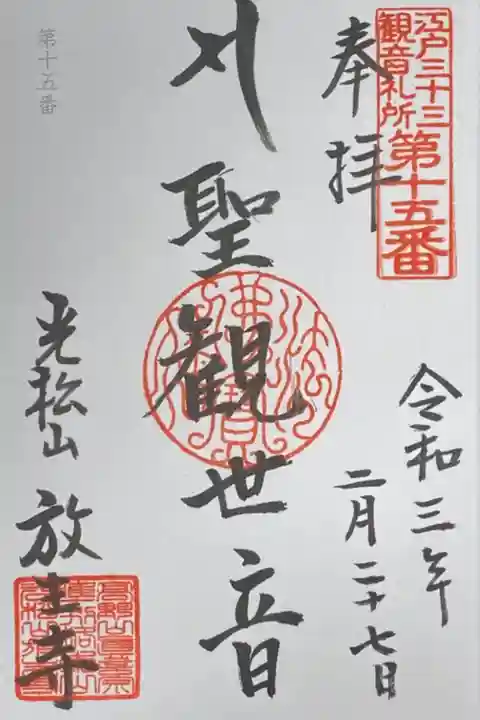 江戸三十三
観音札所
第十五番
奉拝
令和三年
二月二十七日
聖観世音
光松山 放生寺
第十五番